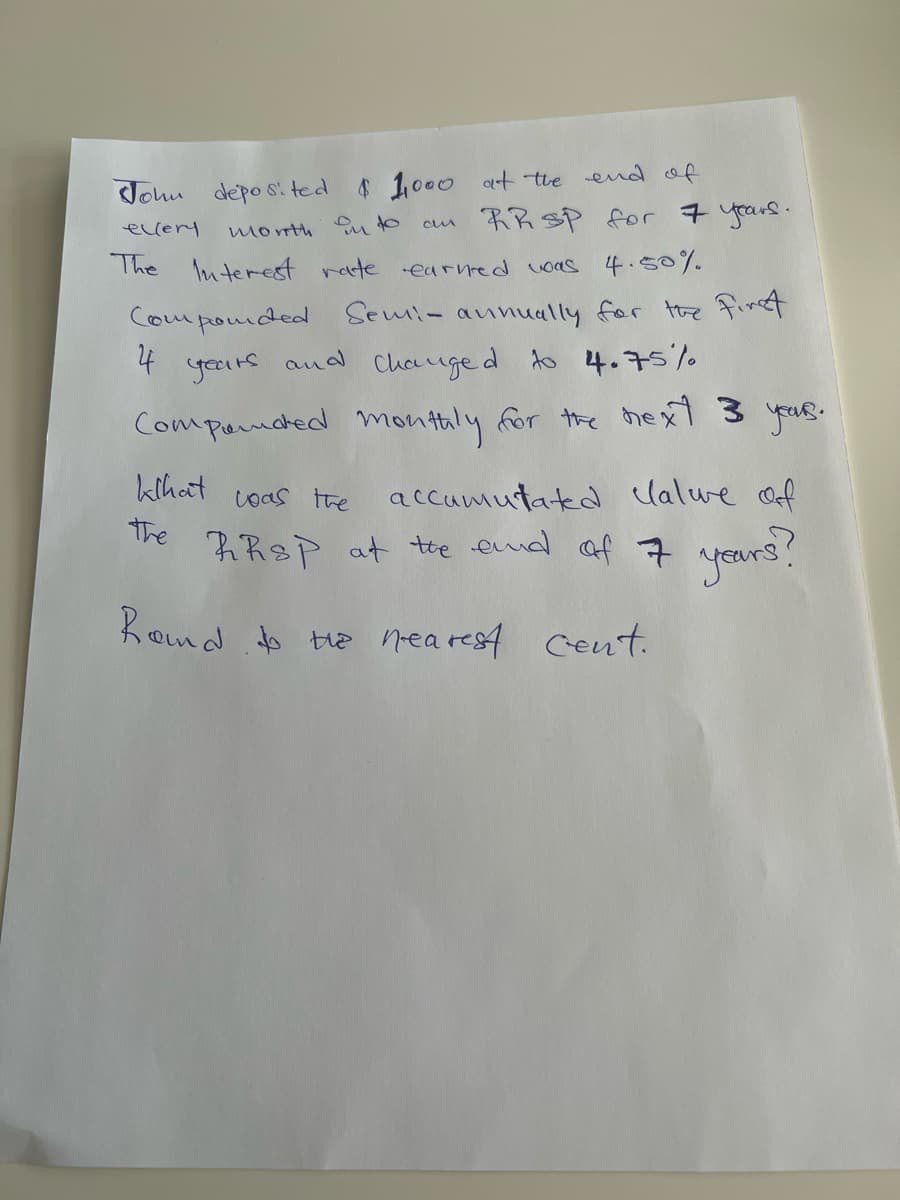 John deposited $ 1,000 at the end of
every month into an RRSP for 7 years.
The Interest rate earned was 4.50%
Compounded Semi-annually for the first
4 years and changed to 4.75%
Compounded monthly for the next 3 years.
What was the accumutated Value of
the RRSP at the end of 7 years?
Round to the nearest Cent.